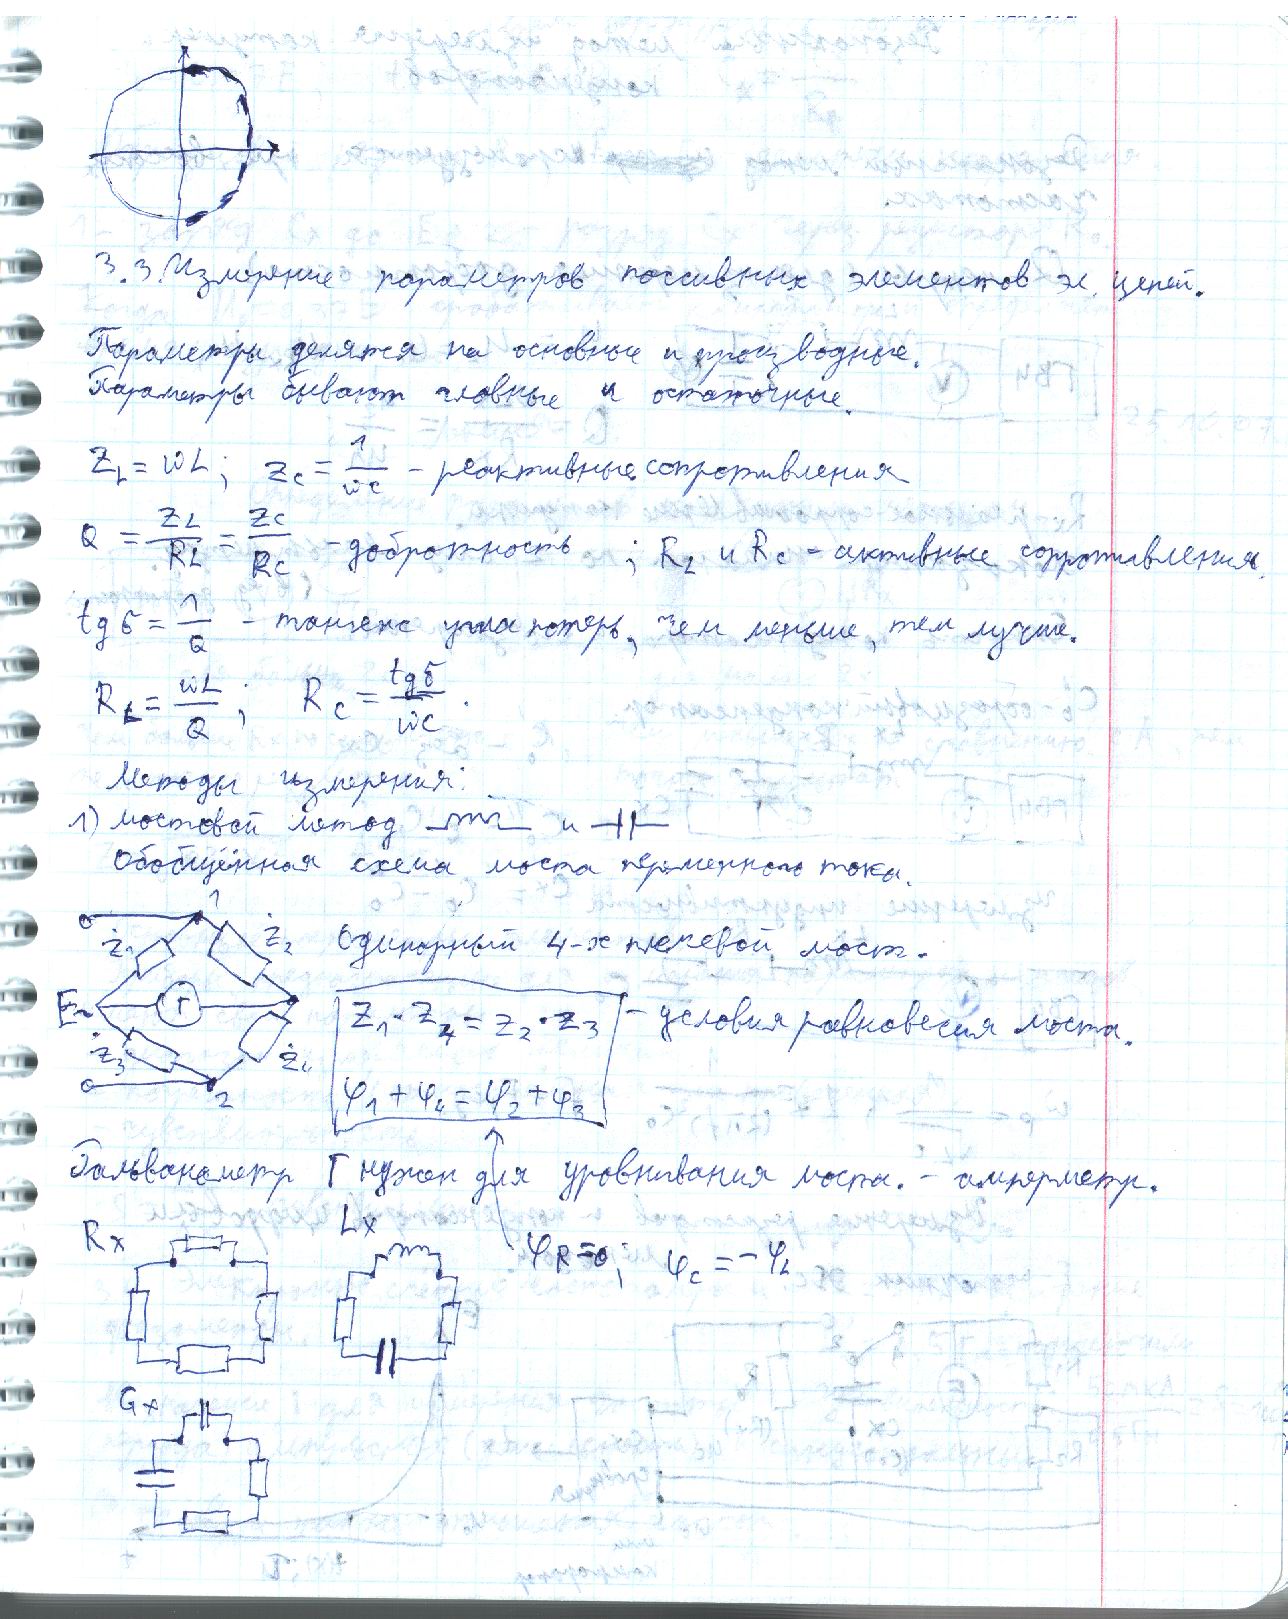 3.3. Измерение параметров пассивных элементов эл. цепей.
Параметры делятся на основные и производные.
Параметры бывают главные и остаточные.
Z_L = ωL; Z_C = 1/ωC - реактивные сопротивления
Q = Z_L/R_L = Z_C/R_C - добротность ; R_L и R_C - активные сопротивления.
tg б = 1/Q - тангенс угла потерь, чем меньше, тем лучше.
R_L = ωL/Q; R_C = tg б/ωC.
Методы измерения:
1) мостовой метод и
Обобщённая схема моста переменного тока.
1
Ż1 Ż2 Одинарный 4-х плечевой мост.
E~ Г Z1·Z4 = Z2·Z3 - условия равновесия моста.
Ż3 Ż4
2 φ1 + φ4 = φ2 + φ3
Гальванометр Г нужен для уравнивания моста. - амперметр.
Rx Lx φR = 0; φC = -φL
Gx